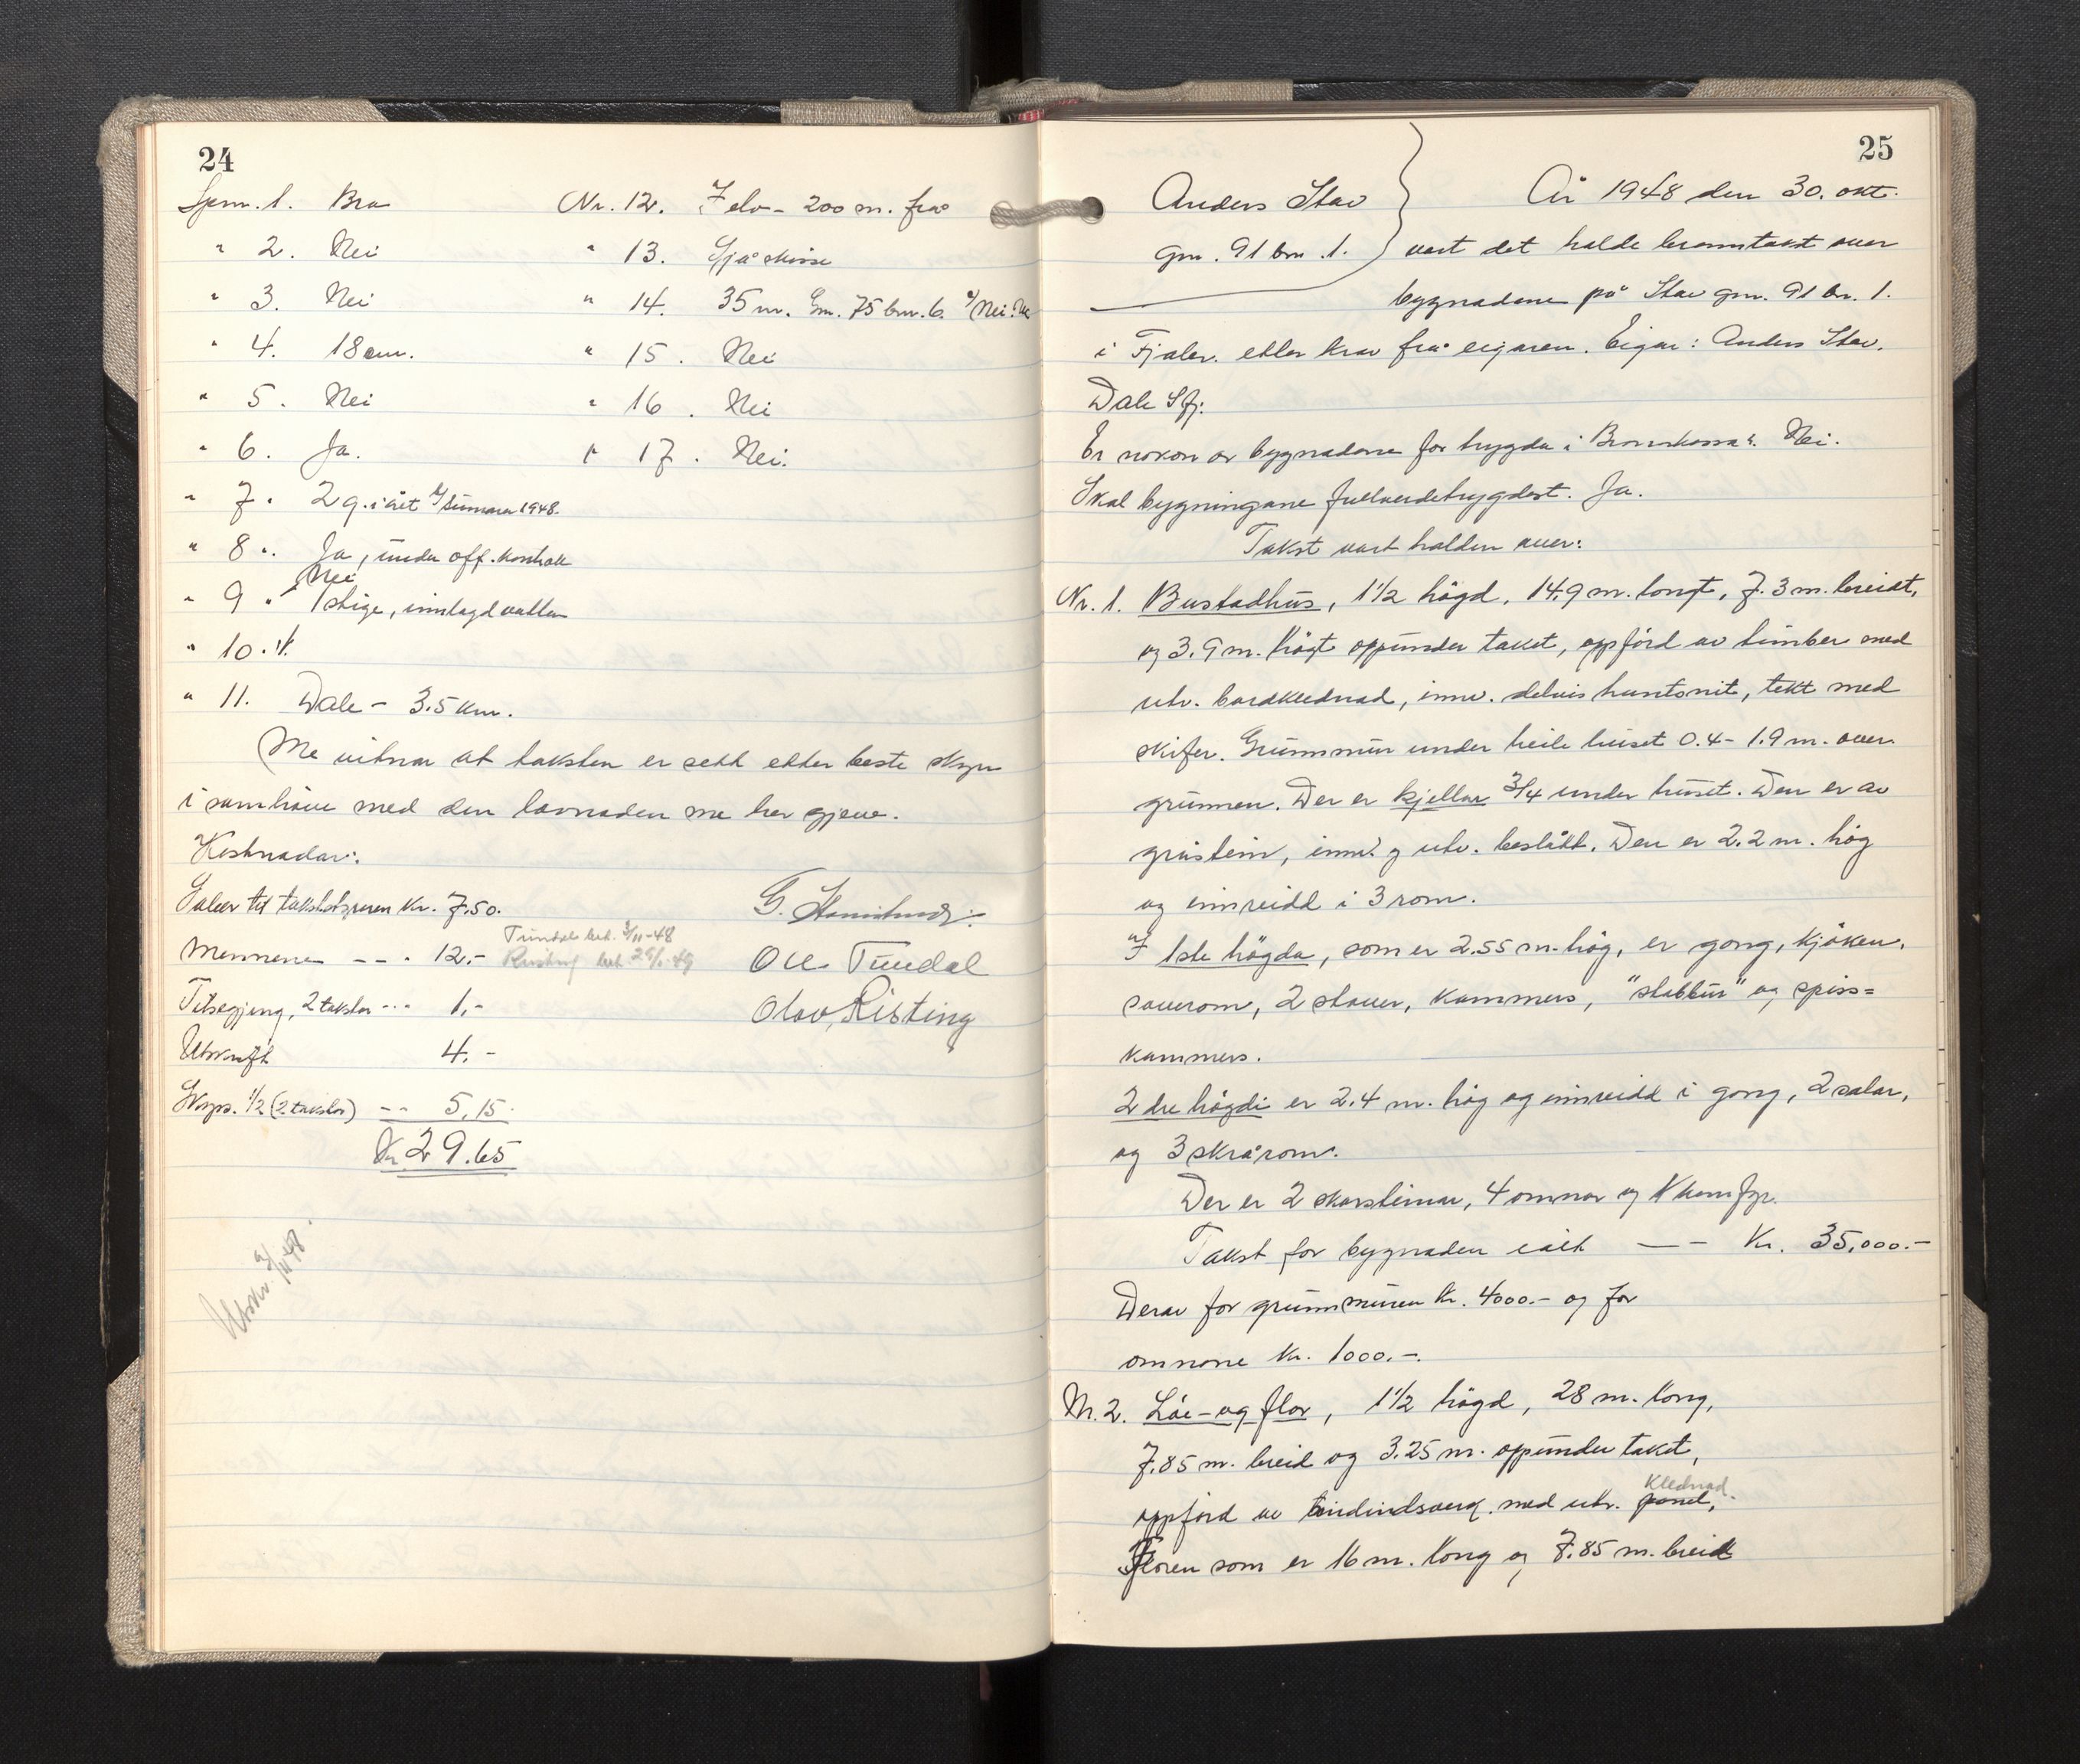 24
Spm. 1. Bra
" 2. Nei
" 3. Nei
" 4. 18 cm.
" 5. Nei
" 6. Ja.
" 7. 2 g. i året
" 8. Ja, under off. kontroll
" 9. Nei
1 stige, innlagd vatten
" 10.
" 11. Dale - 3.5 km.
Nr. 12. I elv - 200 m. frå
" 13. Sjå skisse
" 14. 35 m. Gn. 75 bnr. 6.
" 15. Nei
" 16. Nei
" 17. Nei.
Me vitnar at taksten er sett etter beste skyn
i samhøve med den lovnaden me har gjeve.
Kostnadar:
Salær til takststyraren kr. 7.50.
Mennene -- - 12.-
Tilsegjing, 2 takstar --- 1,-
Utskrift 4.-
Skyss. 1/2 (2 takstar) -- 5,15
Kr. 29.65
Tundal bet. 3/11-48
Risting bet.
Ole Tundal
Olav Risting
Utskr.
25
Anders Stav
gnr. 91 bnr. 1.
År 1948 den 30. okt.
vart det halde branntakst over
bygnadane på Stav gnr. 91 br. 1.
i Fjaler. etter krav frå eigaren. Eigar: Anders Stav,
Dale Sfj.
Er nokon av bygnadane før trygda i Brannkassa? Nei.
Skal bygningane fullverdetrygdast. Ja.
Takst vart halden over:
Nr. 1. Bustadhus, 1 1/2 högd, 14.9 m. langt, 7.3 m. breidt,
og 3.9 m. högt oppunder taket, oppförd av timber med
utv. bordklednad, innv. delvis huntonit, tekt med
skifer. Grunnmur under heile huset 0.4 - 1.9 m. over
grunnen. Der er kjellar 3/4 under huset. Den er av
gråstein, innv. og utv. beslått. Den er 2.2 m. hög
og innreidd i 3 rom.
I 1ste högda, som er 2.55 m. hög, er gang, kjöken,
soverom, 2 stover, kammers, "stabbur" og spiss=
kammers.
2dre högdi er 2.4 m. hög og innreidd i gang, 2 salar,
og 3 skrårom.
Der er 2 skorsteinar, 4 omnar og 1 komfyr.
Takst for bygnaden ialt -- Kr. 35,000.-
Derav for grunnmuren kr. 4000.- og for
omnane kr. 1000.-.
Nr. 2. Löe- og flor, 1 1/2 högd, 28 m. long,
7.85 m. breid og 3.25 m. oppunder taket,
oppförd av bindindsverk med utv. panel,
Klednad.
Floren som er 16 m. long og 7.85 m. breid